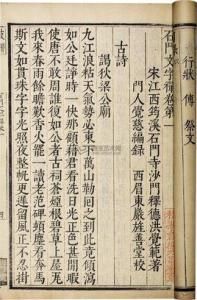 石門文字禪卷第
宋江西筠溪石門寺沙門釋德洪覺範著
門人覺慈編錄
西眉東巖旌善堂校
古詩
謁狄梁公廟
九江浪粘天氣勢必東下萬山勒回之到此竟傾瀉
如公廷諍時一快那顧藉君看洗日光正色甚閒暇
使唐不敢周誰復如公者古祠蒼煙根碧草上屋瓦
我來春雨餘瞻歎香火罷一讀老范碑頓塵看奔馬
斯文如貫珠字字光照夜整帆更遲留風正不忍掛
行狀 傳 祭文